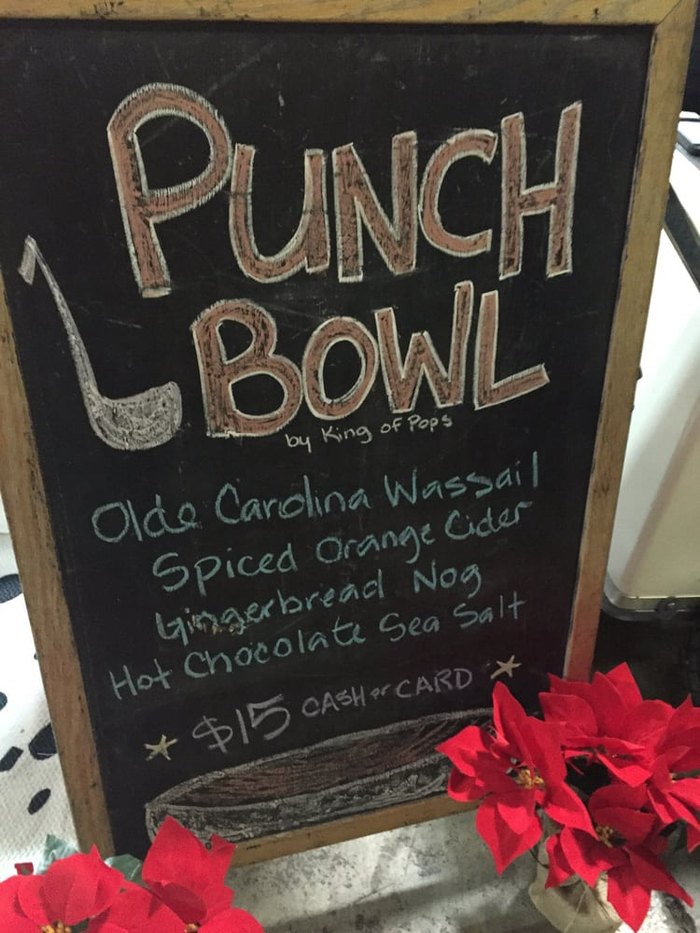 PUNCH
BOWL
by King of Pops
Olde Carolina Wassail
Spiced Orange Cider
Gingerbread Nog
Hot Chocolate Sea Salt
$15 CASH or CARD